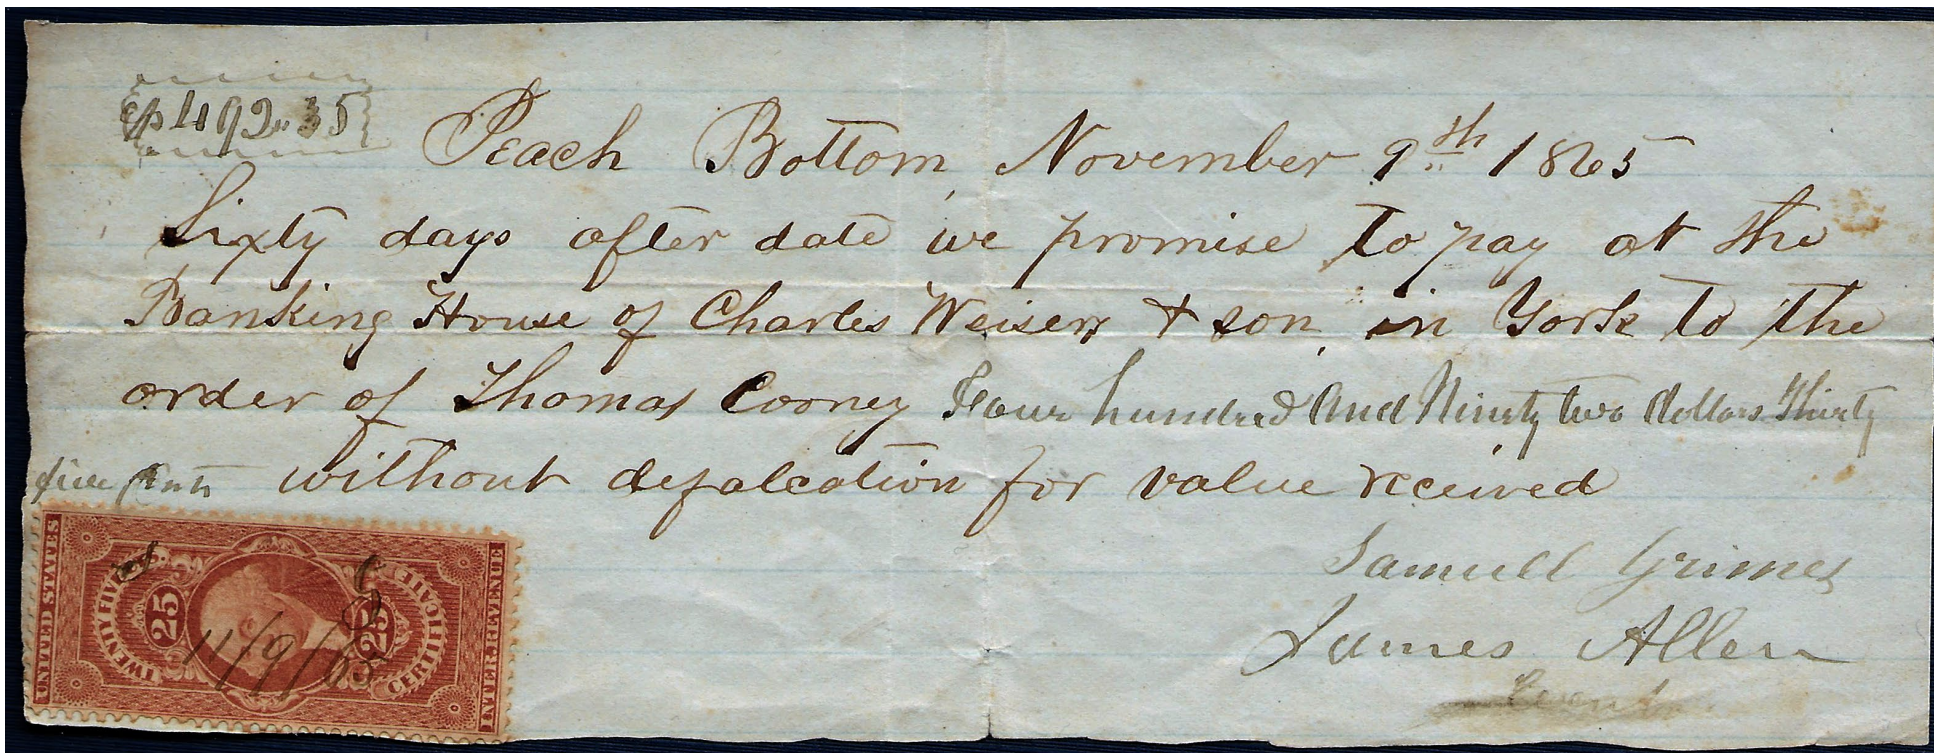 $492.35
Peach Bottom, November 9th 1865
Sixty days after date we promise to pay at the
Banking House of Charles Weiser & son, in York to the
order of Thomas Cooney Four hundred and Ninety two dollars Thirty
five cents without defalcation for value received
Samuel Grimes
James Allen
UNITED STATES
TWENTY FIVE CENTS
25
25
CERTIFICATE
INTER. REVENUE
S G
11/9/65